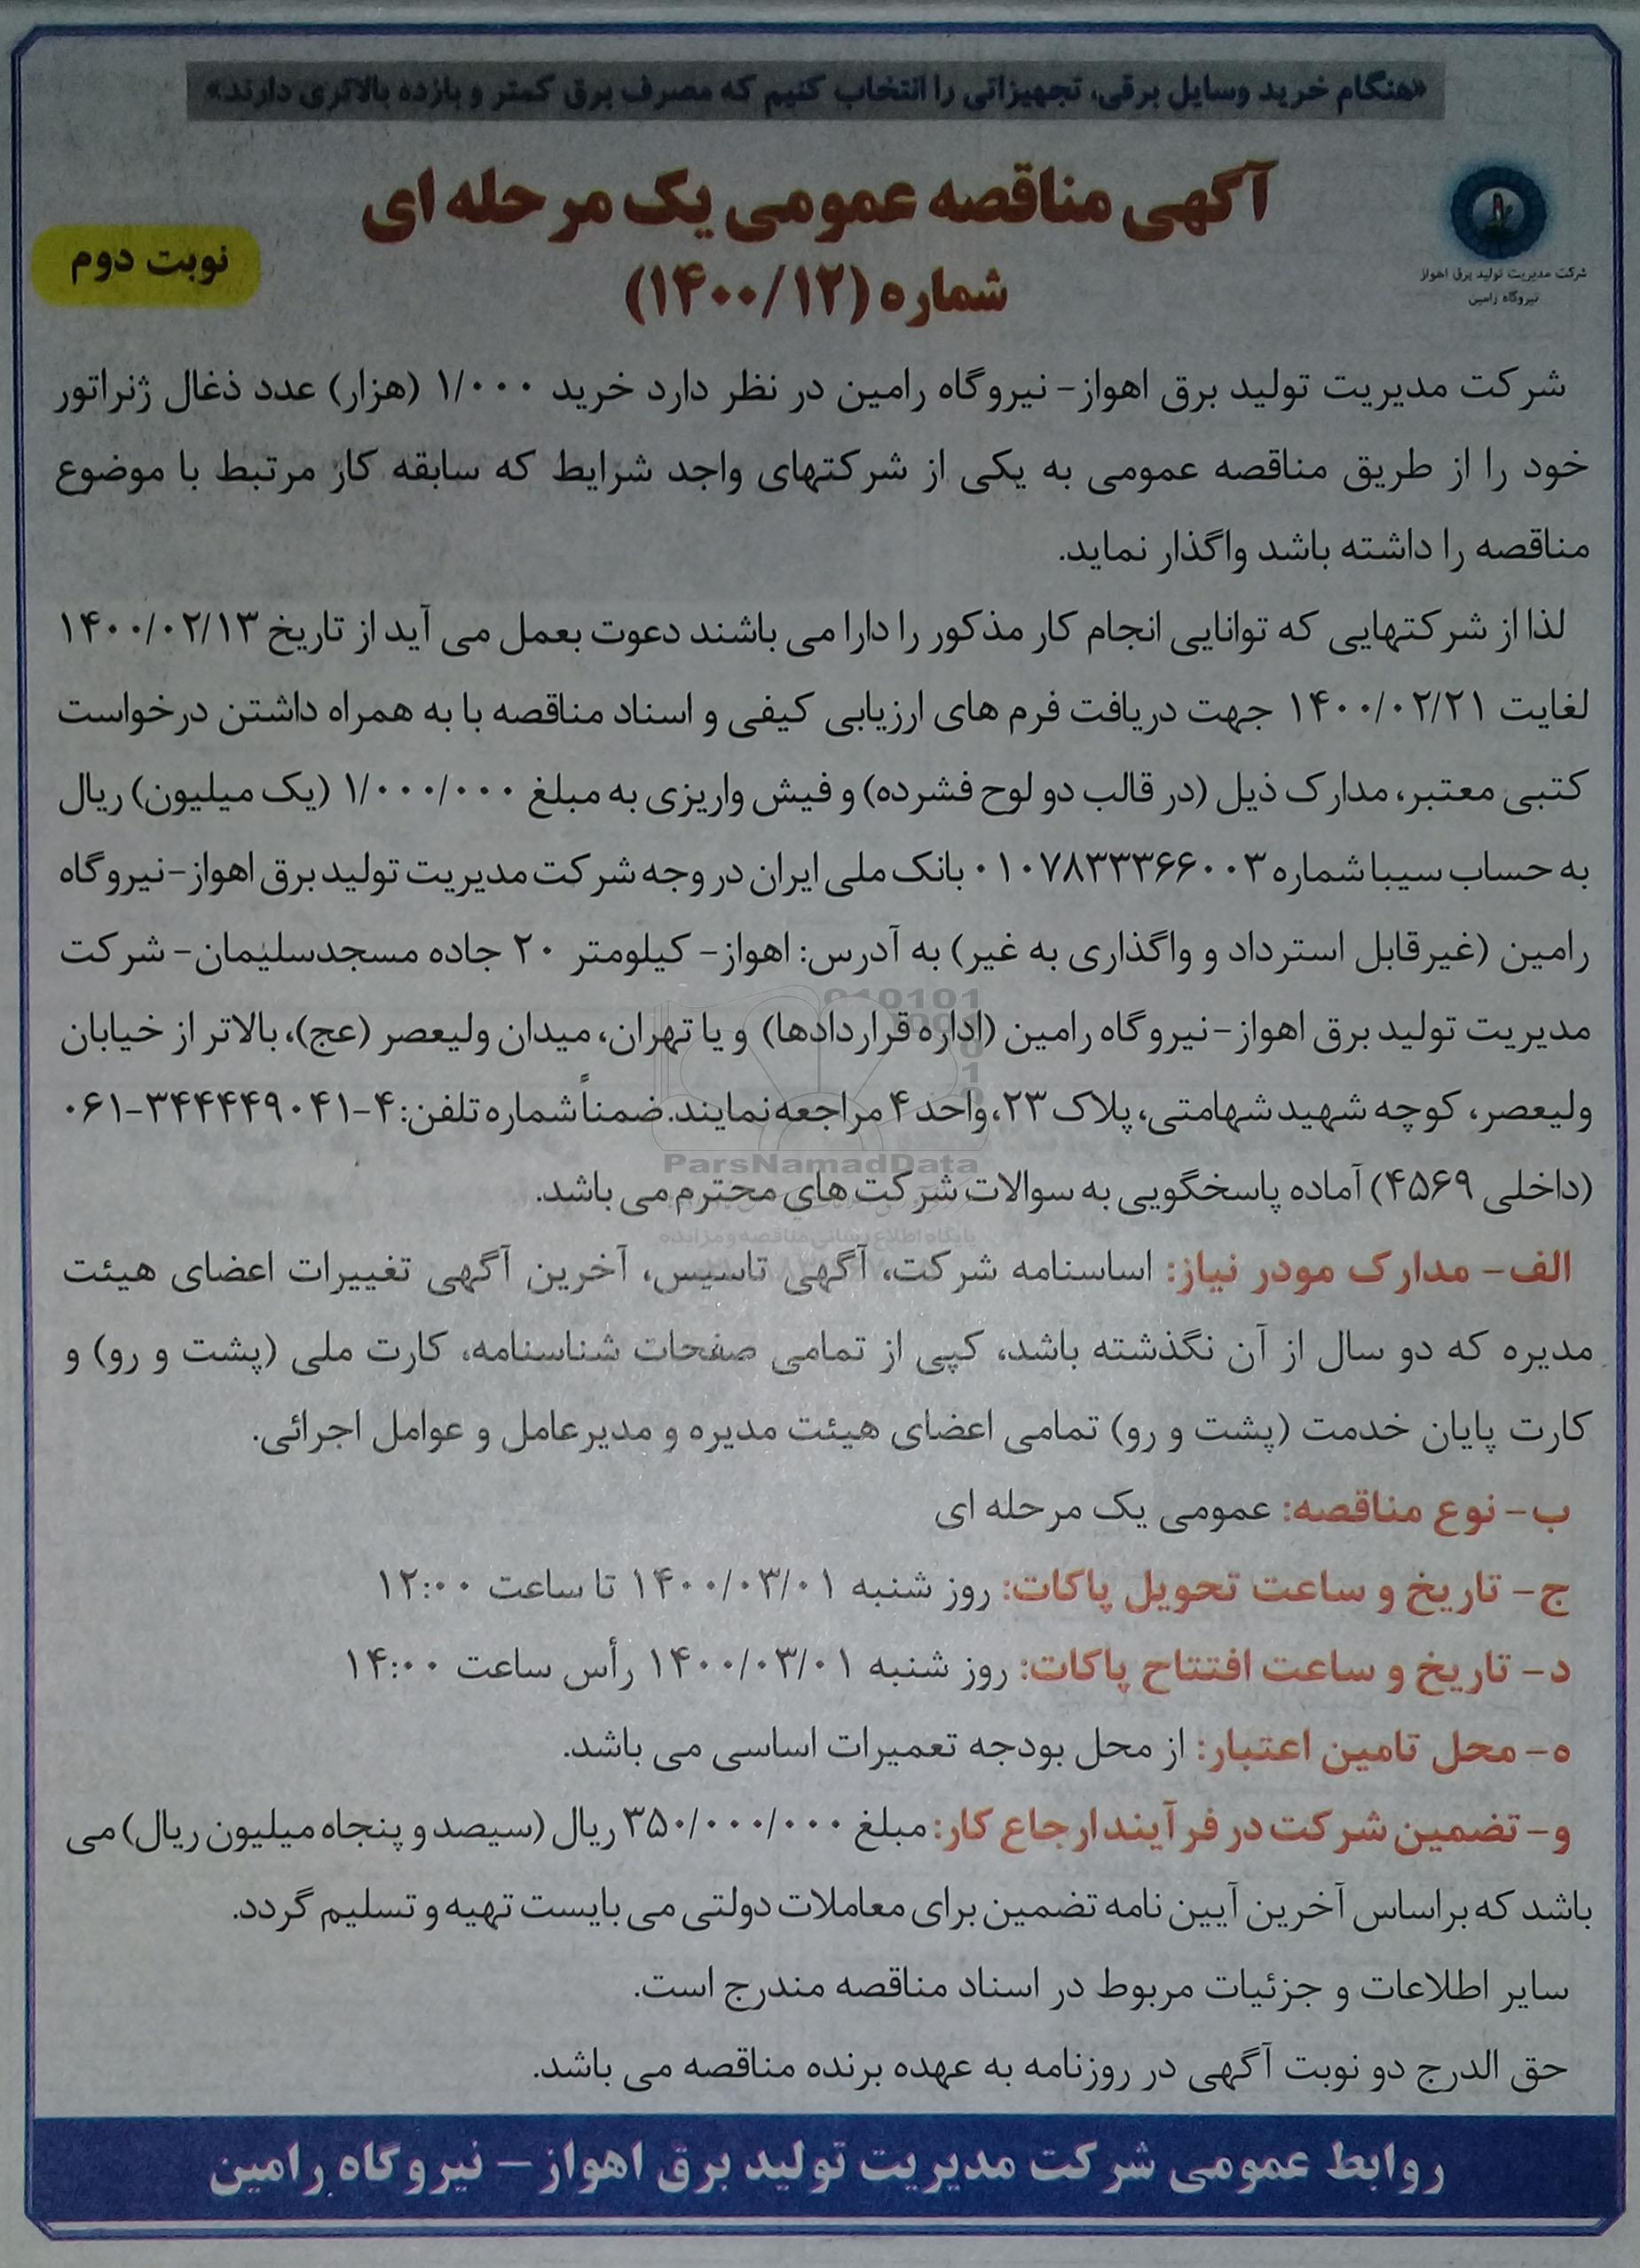 «هنگام خرید وسایل برقی، تجهیزاتی را انتخاب کنیم که مصرف برق کمتر و بازده بالاتری دارند»
آگهی مناقصه عمومی یک مرحله ای
شماره (۱۴۰۰/۱۲)
نوبت دوم
شرکت مدیریت تولید برق اهواز
نیروگاه رامین
شرکت مدیریت تولید برق اهواز- نیروگاه رامین در نظر دارد خرید ۱/۰۰۰ (هزار) عدد ذغال ژنراتور
خود را از طریق مناقصه عمومی به یکی از شرکتهای واجد شرایط که سابقه کار مرتبط با موضوع
مناقصه را داشته باشد واگذار نماید.
لذا از شرکتهایی که توانایی انجام کار مذکور را دارا می باشند دعوت بعمل می آید از تاریخ ۱۴۰۰/۰۲/۱۳
لغایت ۱۴۰۰/۰۲/۲۱ جهت دریافت فرم های ارزیابی کیفی و اسناد مناقصه با به همراه داشتن درخواست
کتبی معتبر، مدارک ذیل (در قالب دو لوح فشرده) و فیش واریزی به مبلغ ۱/۰۰۰/۰۰۰ (یک میلیون) ریال
به حساب سیبا شماره ۰۱۰۷۸۳۳۳۶۶۰۰۳ بانک ملی ایران در وجه شرکت مدیریت تولید برق اهواز-نیروگاه
رامین (غیرقابل استرداد و واگذاری به غیر) به آدرس: اهواز- کیلومتر ۲۰ جاده مسجدسلیمان- شرکت
مدیریت تولید برق اهواز-نیروگاه رامین (اداره قراردادها) و یا تهران، میدان ولیعصر (عج)، بالاتر از خیابان
ولیعصر، کوچه شهید شهامتی، پلاک ۲۳، واحد ۴ مراجعه نمایند. ضمناً شماره تلفن: ۴-۳۴۴۴۴۹۰۴۱-۰۶۱
(داخلی ۴۵۶۹) آماده پاسخگویی به سوالات شرکت های محترم می باشد.
ParsNamadData
پایگاه اطلاع رسانی مناقصه و مزایده
الف- مدارک مودر نیاز: اساسنامه شرکت، آگهی تاسیس، آخرین آگهی تغییرات اعضای هیئت
مدیره که دو سال از آن نگذشته باشد، کپی از تمامی صفحات شناسنامه، کارت ملی (پشت و رو) و
کارت پایان خدمت (پشت و رو) تمامی اعضای هیئت مدیره و مدیرعامل و عوامل اجرائی.
ب- نوع مناقصه: عمومی یک مرحله ای
ج- تاریخ و ساعت تحویل پاکات: روز شنبه ۱۴۰۰/۰۳/۰۱ تا ساعت ۱۲:۰۰
د- تاریخ و ساعت افتتاح پاکات: روز شنبه ۱۴۰۰/۰۳/۰۱ رأس ساعت ۱۴:۰۰
ه- محل تامین اعتبار: از محل بودجه تعمیرات اساسی می باشد.
و- تضمین شرکت در فرآیند ارجاع کار: مبلغ ۳۵۰/۰۰۰/۰۰۰ ریال (سیصد و پنجاه میلیون ریال) می
باشد که براساس آخرین آیین نامه تضمین برای معاملات دولتی می بایست تهیه و تسلیم گردد.
سایر اطلاعات و جزئیات مربوط در اسناد مناقصه مندرج است.
حق الدرج دو نوبت آگهی در روزنامه به عهده برنده مناقصه می باشد.
روابط عمومی شرکت مدیریت تولید برق اهواز - نیروگاه رامین